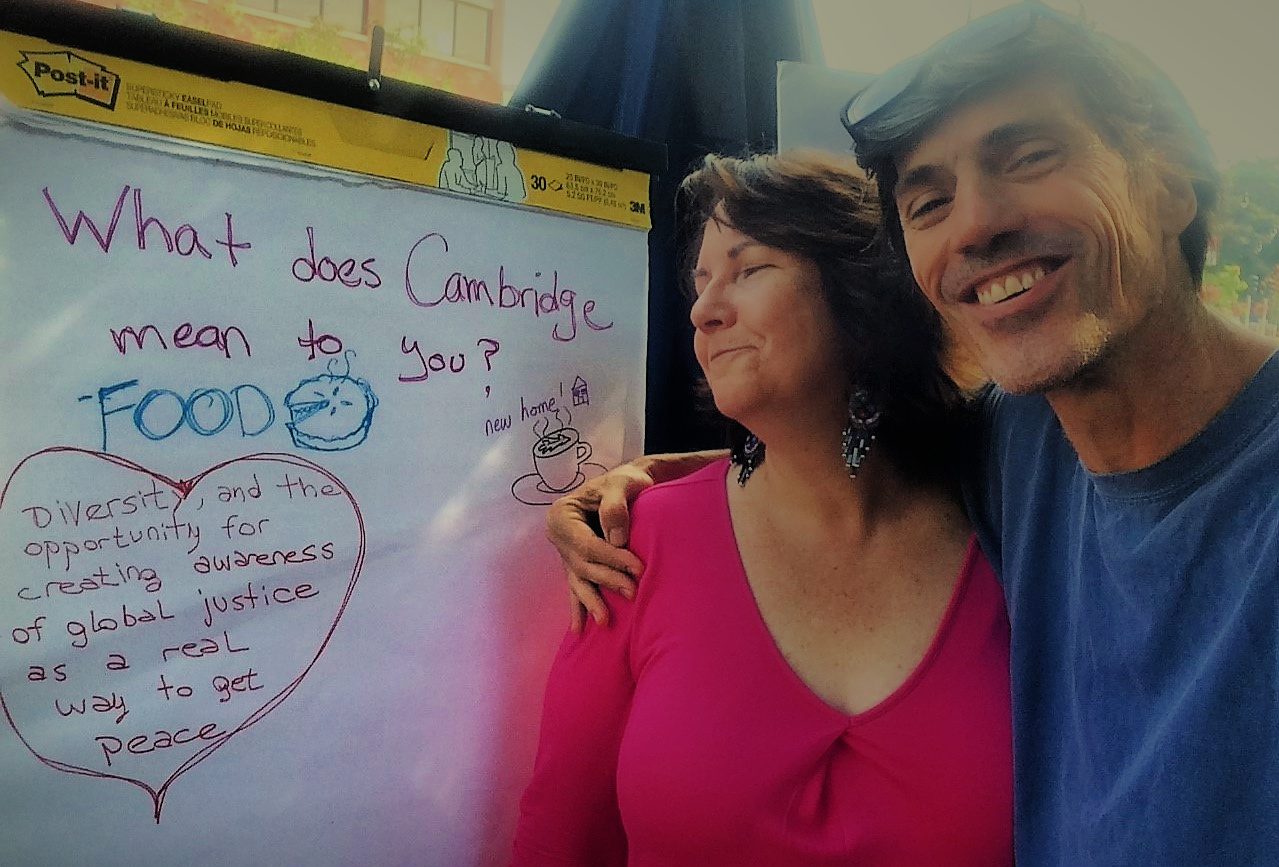 Post-it
SUPERSTICKY EASEL PAD
TABLEAU À FEUILLES MOBILES SUPERCOLLANTES
SUPERADHESIVAS BLOC DE HOJAS REPOSICIONABLES
30
3M
What does Cambridge
mean to you?
FOOD
new home!
Diversity, and the
opportunity for
creating awareness
of global justice
as a real
way to get
peace